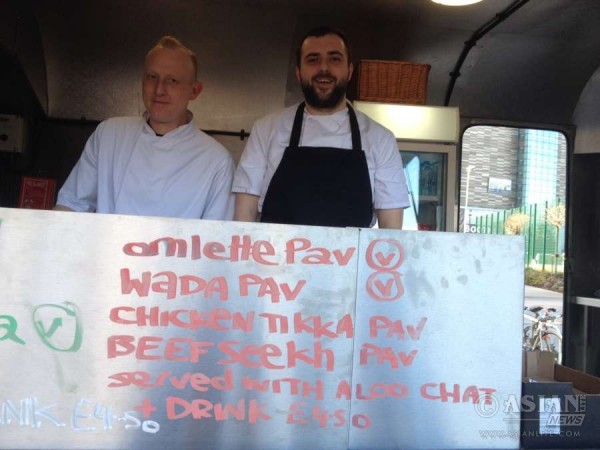 omlette Pav V
WADA PAV V
CHICKEN TIKKA PAV
a V
BEEF Seekh PAV
served WITH ALOO CHAT
NIK £4.50
+ DRINK £4.50
ASIAN LITE
NEWS